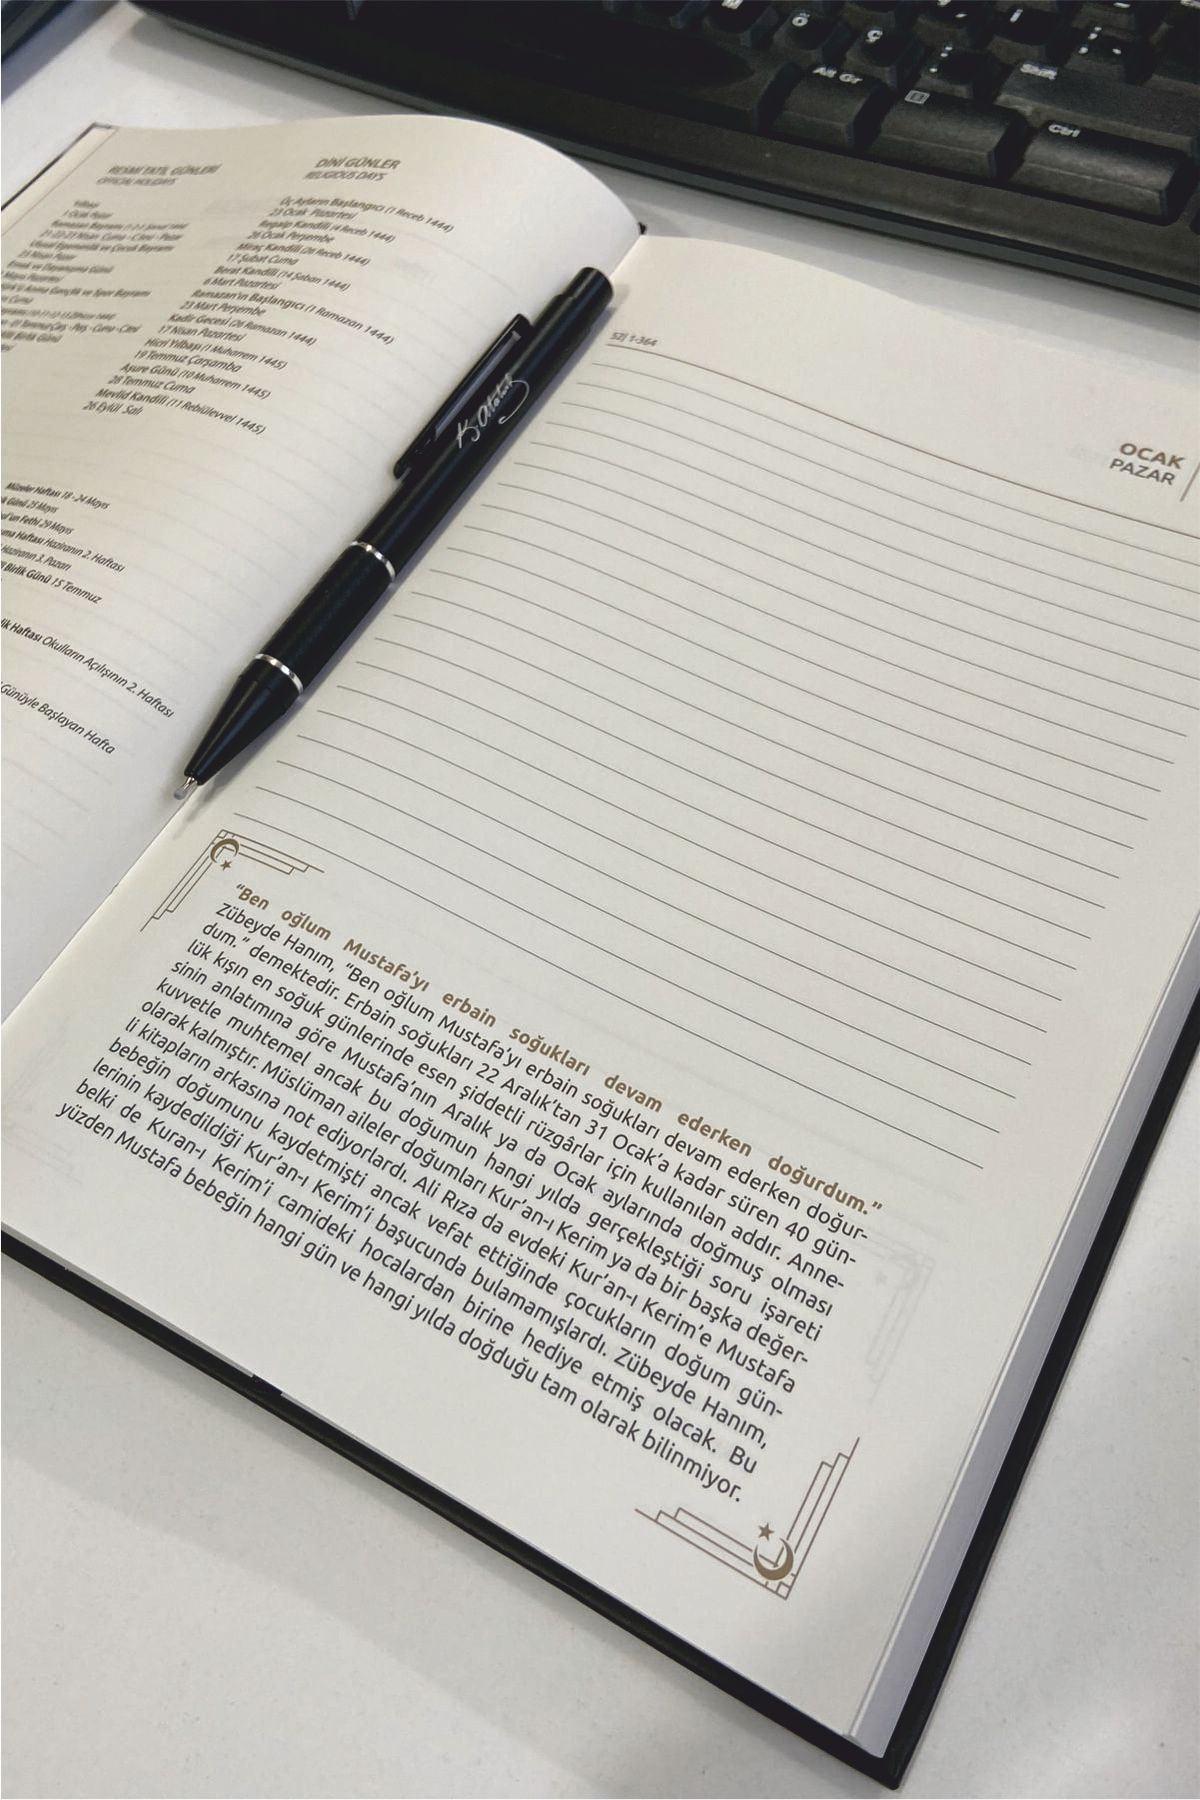 RESMİ TATİL GÜNLERİ
OFFICIAL HOLIDAYS
Yılbaşı
1 Ocak Pazar
Ramazan Bayramı
21-22-23 Nisan Cuma - Cmt - Pazar
Ulusal Egemenlik ve Çocuk Bayramı
23 Nisan Pazar
Emek ve Dayanışma Günü
Mayıs Pazartesi
Anma Gençlik ve Spor Bayramı
Cuma
Birlik Günü
DİNİ GÜNLER
RELIGIOUS DAYS
Üç Ayların Başlangıcı (1 Receb 1444)
23 Ocak Pazartesi
Regaip Kandili (4 Receb 1444)
26 Ocak Perşembe
Miraç Kandili (26 Receb 1444)
17 Şubat Cuma
Berat Kandili (14 Şaban 1444)
6 Mart Pazartesi
Ramazan'ın Başlangıcı (1 Ramazan 1444)
23 Mart Perşembe
Kadir Gecesi (26 Ramazan 1444)
17 Nisan Pazartesi
Hicri Yılbaşı (1 Muharrem 1445)
19 Temmuz Çarşamba
Aşure Günü (10 Muharrem 1445)
28 Temmuz Cuma
Mevlid Kandili (11 Rebiülevvel 1445)
26 Eylül Salı
Müzeler Haftası 18 - 24 Mayıs
Günü 25 Mayıs
Fethi 29 Mayıs
Haftası Haziranın 2. Haftası
Haziranın 3. Pazarı
Birlik Günü 15 Temmuz
Haftası Okulların Açılışının 2. Haftası
Günüyle Başlayan Hafta
K. Atatürk
52| 1-364
OCAK
PAZAR
"Ben oğlum Mustafa'yı erbain soğukları devam ederken doğurdum."
Zübeyde Hanım, "Ben oğlum Mustafa'yı erbain soğukları devam ederken doğur-
dum." demektedir. Erbain soğukları 22 Aralık'tan 31 Ocak'a kadar süren 40 gün-
lük kışın en soğuk günlerinde esen şiddetli rüzgârlar için kullanılan addır. Anne-
sinin anlatımına göre Mustafa'nın Aralık ya da Ocak aylarında doğmuş olması
kuvvetle muhtemel ancak bu doğumun hangi yılda gerçekleştiği soru işareti
olarak kalmıştır. Müslüman aileler doğumları Kur'an-ı Kerim ya da bir başka değer-
li kitapların arkasına not ediyorlardı. Ali Rıza da evdeki Kur'an-ı Kerim'e Mustafa
bebeğin doğumunu kaydetmişti ancak vefat ettiğinde çocukların doğum gün-
lerinin kaydedildiği Kur'an-ı Kerim'i başucunda bulamamışlardı. Zübeyde Hanım,
belki de Kuran-ı Kerim'i camideki hocalardan birine hediye etmiş olacak. Bu
yüzden Mustafa bebeğin hangi gün ve hangi yılda doğduğu tam olarak bilinmiyor.
Ö
Ç
İ
Alt Gr
Shift
Ctrl